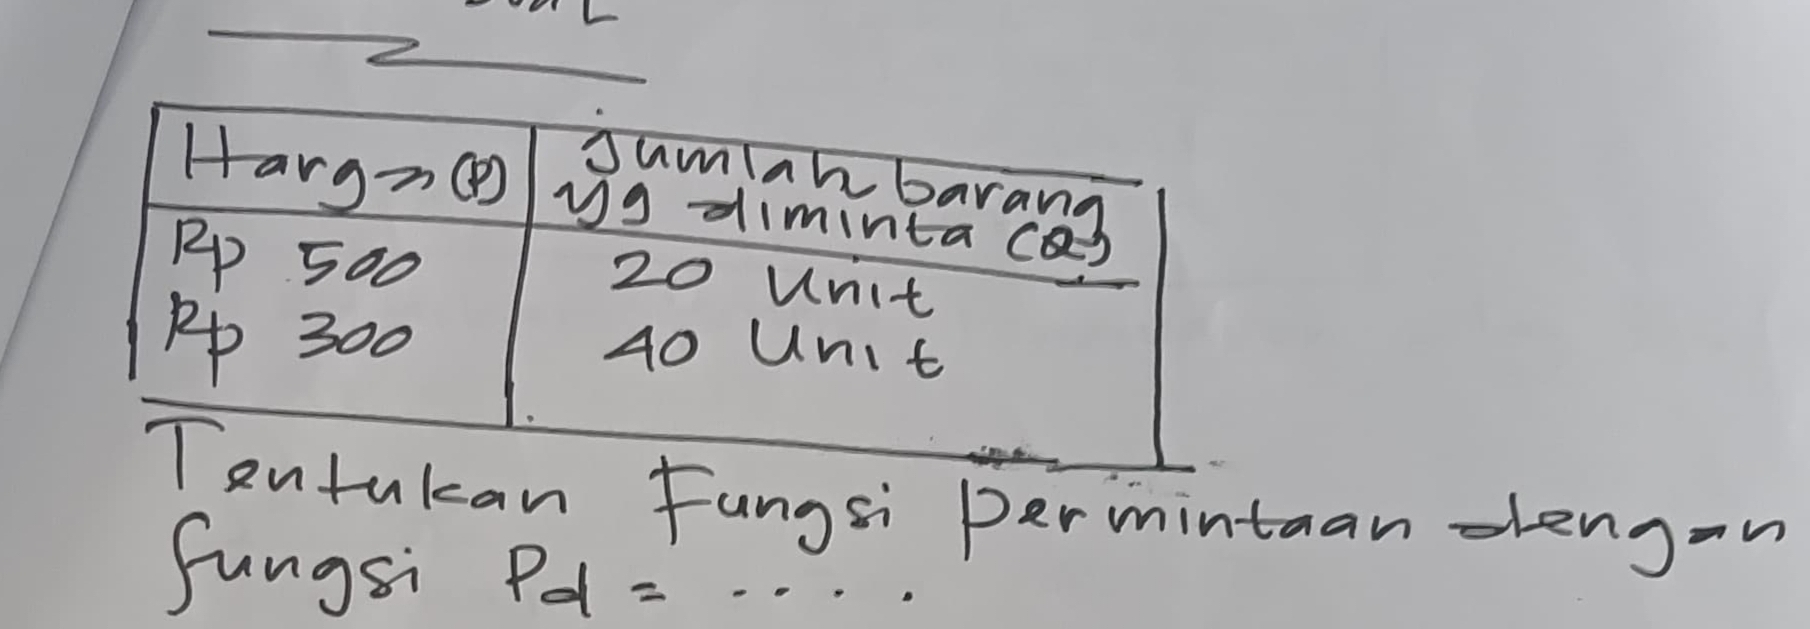 Harga (P) jumlah barang
yg diminta (Q)
Rp 500 20 Unit
Rp 300 40 Unit
Tentukan Fungsi permintaan dengan
fungsi Pd = .....